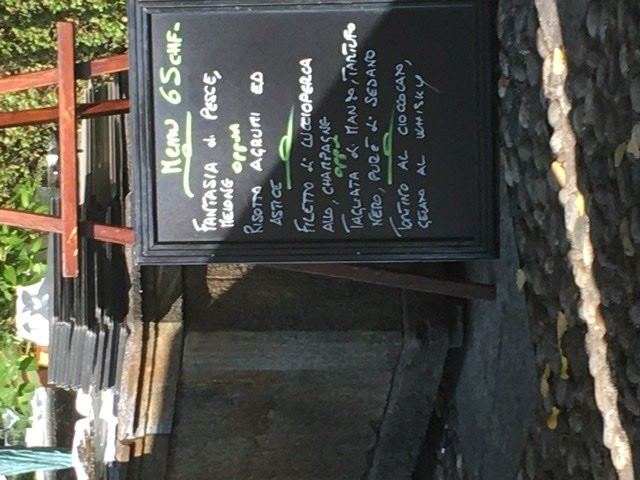 Menu 65 CHF.
FANTASIA di PESCE,
MELONE
oppure
RISOTTO AGRUMI ED
ASTICE
FILETTO di LUCCIOPERCA
ALLO, CHAMPAGNE
oppure
TAGLIATA di MANZO, TARTUFO
NERO, PURÈ di SEDANO
TORTINO AL CIOCCOLATO,
GELATO AL WHISKY